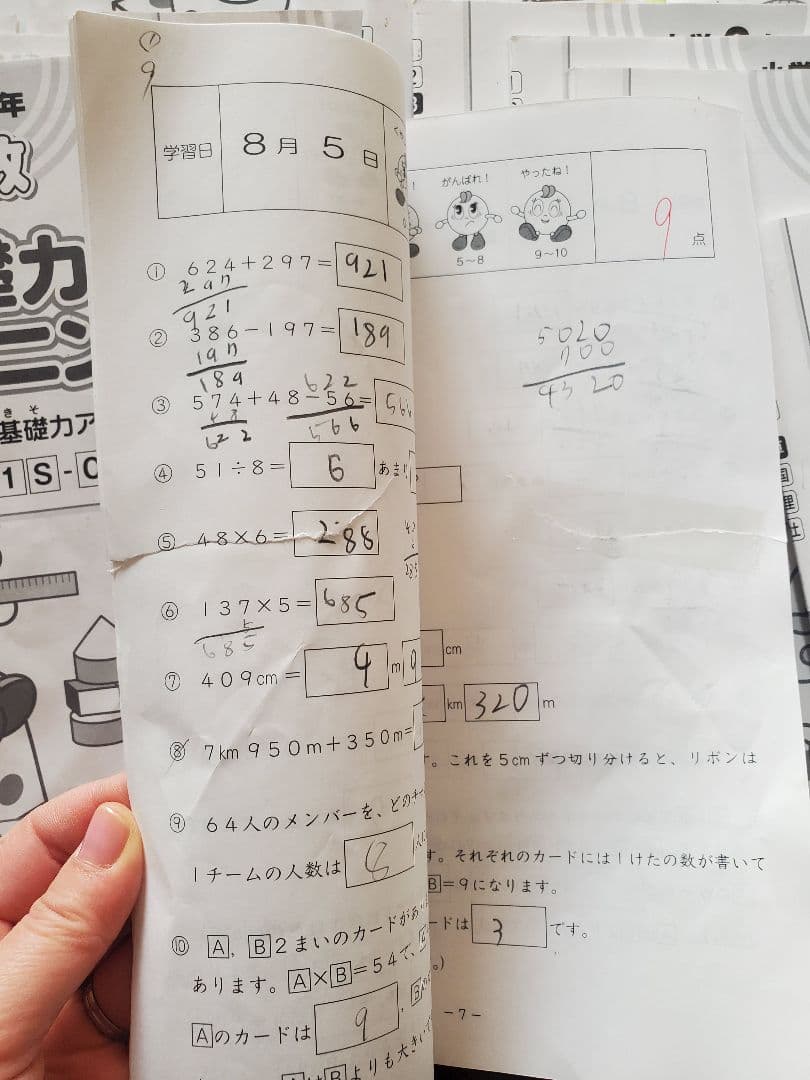 年
数
礎力
基礎力ア
きそ
1S-C
9
学習日 8月5日
①624+297=921
297
921
②386-197=189
197
189
③574+48-56=566
48
622
622
566
④51÷8=6 あまり
⑤48×6=288
⑥137×5=685
5
685
⑦409cm=4m
⑧7km950m+350m=
⑨64人のメンバーを、どのチー
1チームの人数は 8
⑩A,B2まいのカードがあ
あります。A×B=54で、
Aのカードは 9
Bよりも大きい
がんばれ!
やったね!
5~8
9~10
9点
5020
700
4320
cm
km 320 m
す。これを5cmずつ切り分けると、リボンは
す。それぞれのカードには1けたの数が書いて
B=9になります。
ードは 3 です。
-7-